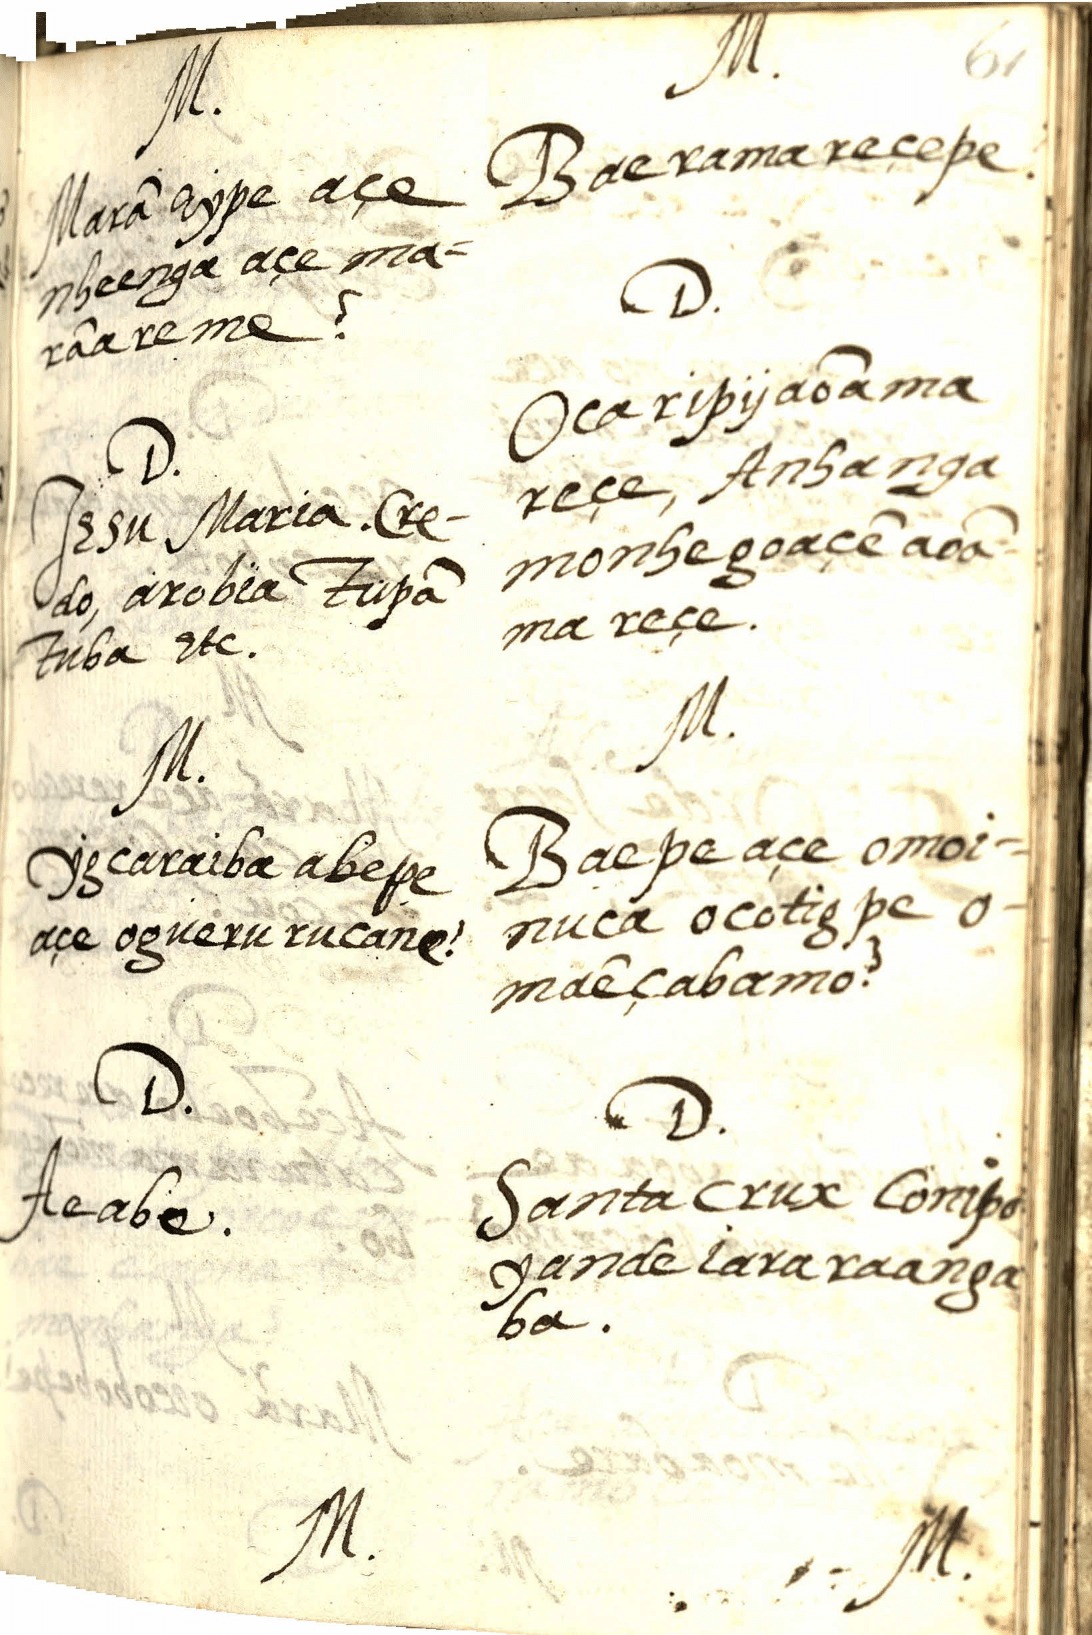 M.
Marã eỹpe açe
nheenga açe ma-
rãareme?
D.
Jesu Maria. Cre-
do, arobia Tupã
tuba etc.
M.
ygcaraiba abepe
açe ogueru rucane?
D.
Aeabe.
M.
61
M.
Baeramareçepe?
D.
Oçaripijaoãma
reçe, Anhanga
monhegoaçẽaoã-
ma reçe.
M.
Baepe açe omoi-
nuca ocotigpe o-
maêçabamo?
D.
Santa Crux Conipo
yande iararaanga
ba.
M.